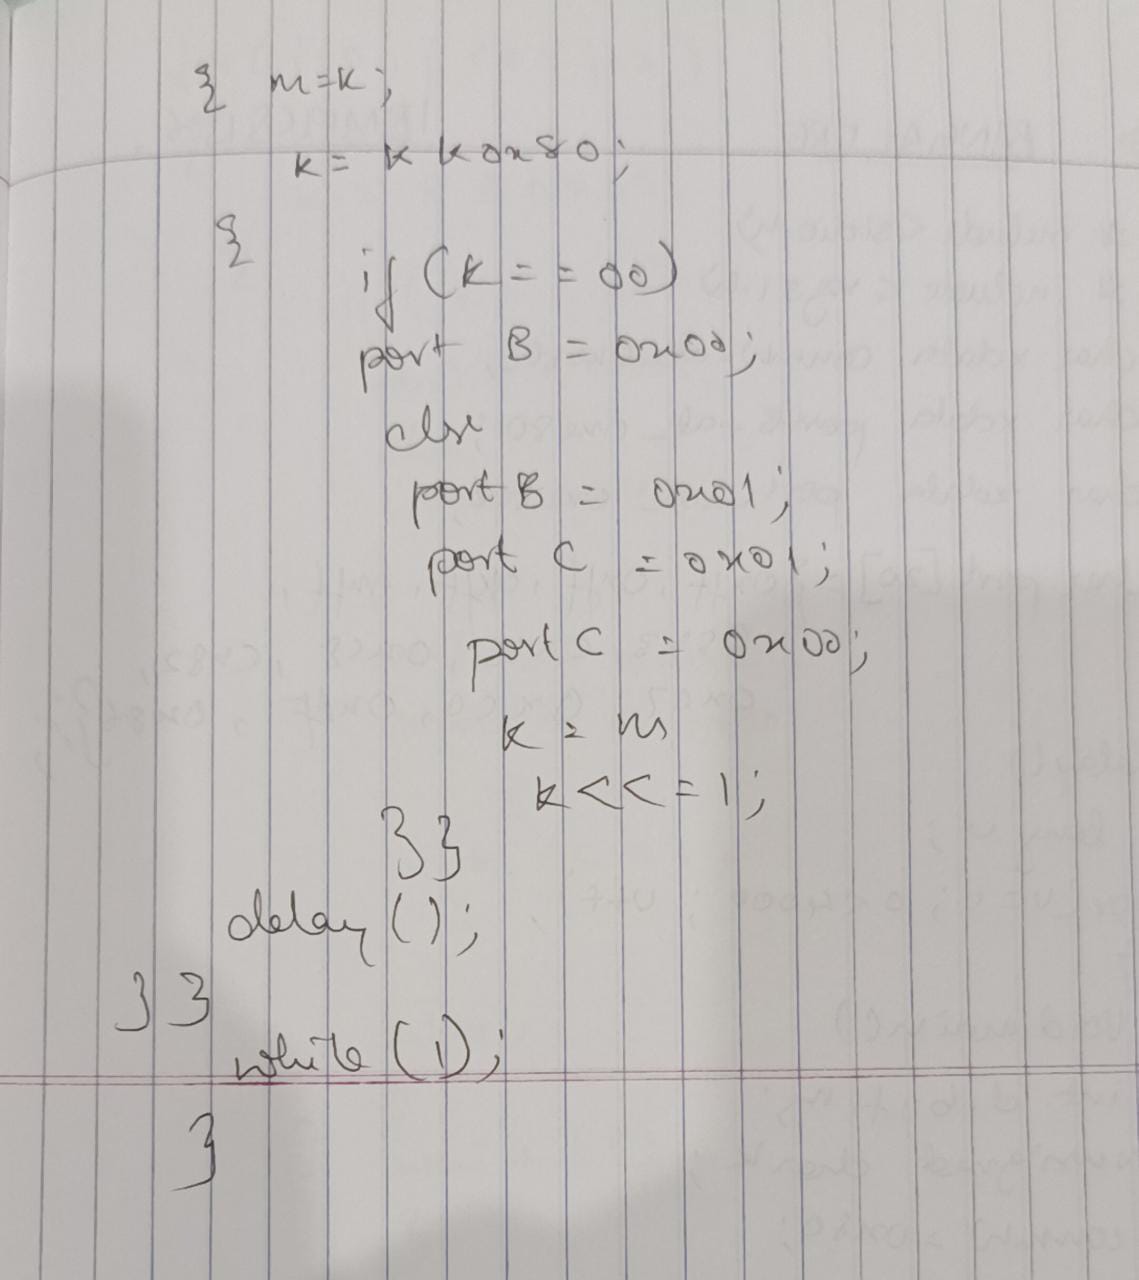 { m=k;
k = k & 0x80;
{
if (k == 00)
port B = 0x00;
else
port B = 0x01;
port C = 0x01;
port C = 0x00;
k = m
k <<= 1;
}}
delay ();
}}
while (1);
}